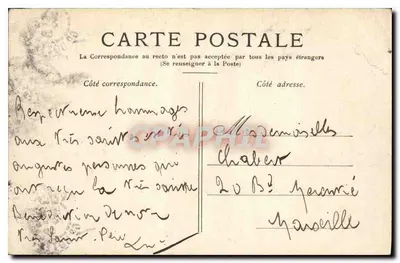 CARTE POSTALE
La Correspondance au recto n'est pas acceptée par tous les pays étrangers
(Se renseigner à la Poste)
Côté correspondance.
Côté adresse.
Respectueux hommages
aux très saintes et
augustes personnes qui
ont reçu la très sainte
Bénédiction de notre
très Saint Père
Mesdemoiselles
Chabert
20 Bd
Marseille
CPAPHIL